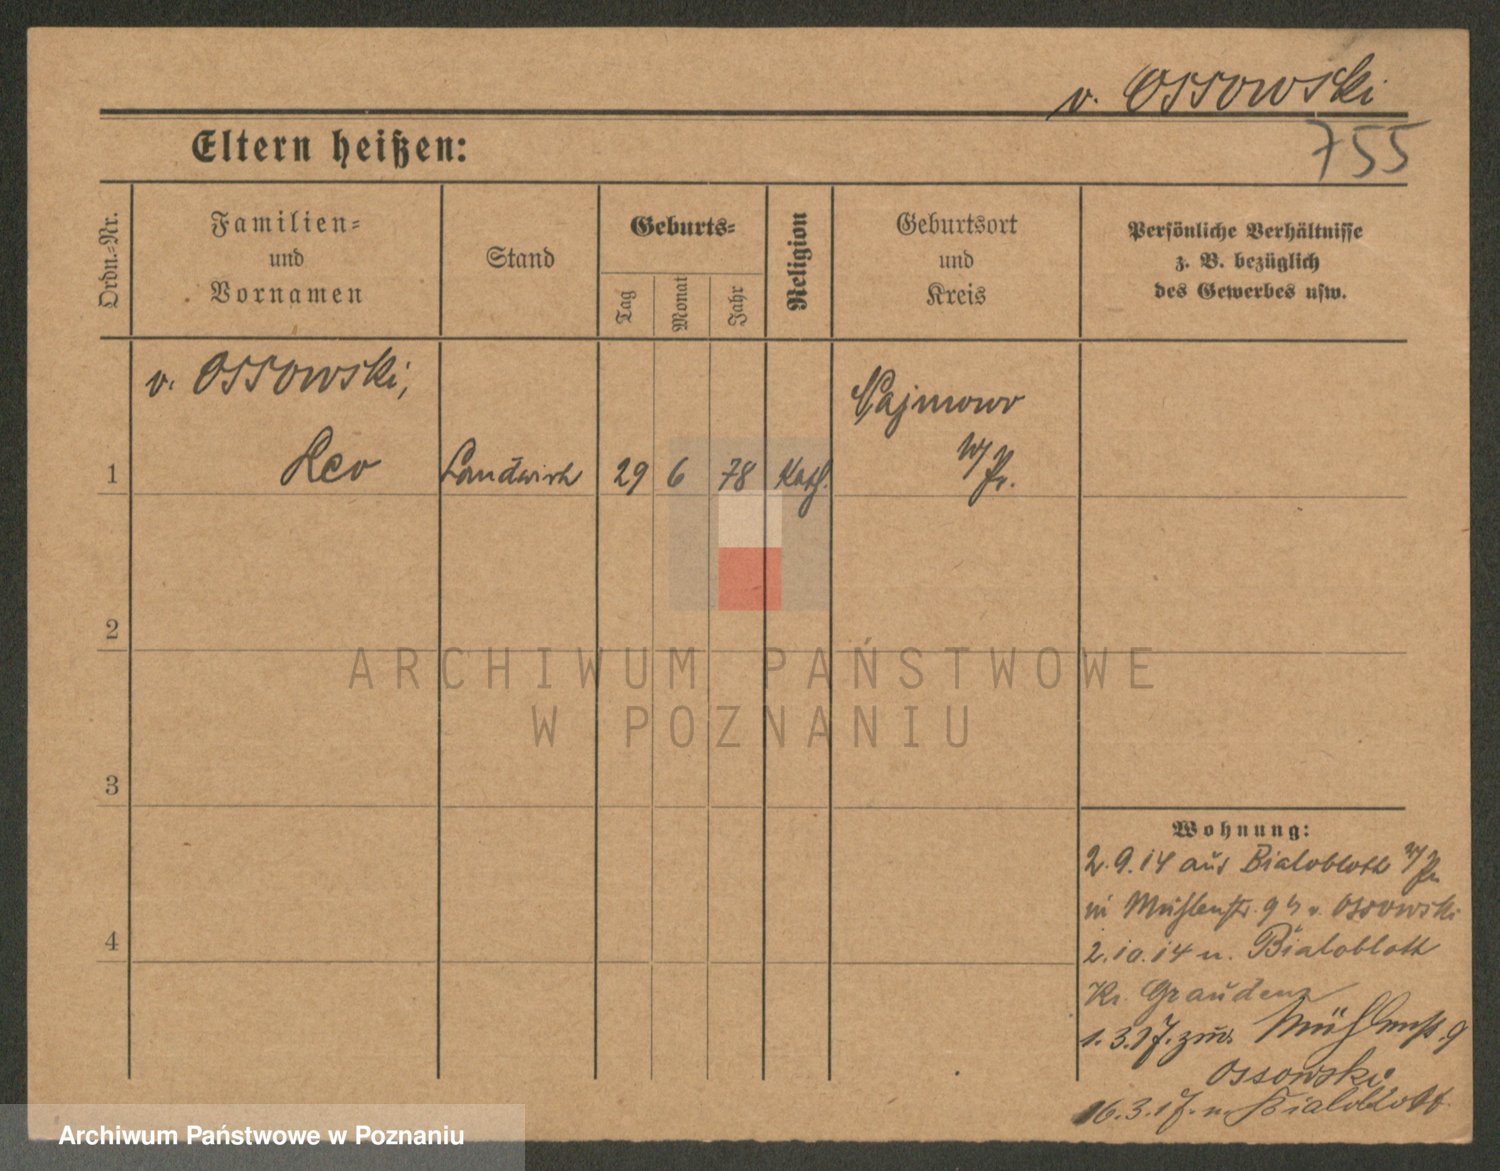 v. Ossowski
755
Eltern heißen:
Ordn.-Nr.
Familien-
und
Vornamen
Stand
Geburts-
Tag
Monat
Jahr
Religion
Geburtsort
und
Kreis
Persönliche Verhältnisse
z. B. bezüglich
des Gewerbes usw.
v. Ossowski,
Najmowo
1 Leo Landwirth 29 6 78 Kath. W/Pr.
2
ARCHIWUM PAŃSTWOWE
W POZNANIU
3
Wohnung:
2.9.14 aus Bialobloth W/Pr.
in Mühlenstr. 9 b v. Ossowski
4
2.10.14 n. Bialobloth
Kr. Graudenz
1.3.17. zur. Mühlenstr. 9
Ossowski
16.3.17. n. Bialoblott
Archiwum Państwowe w Poznaniu